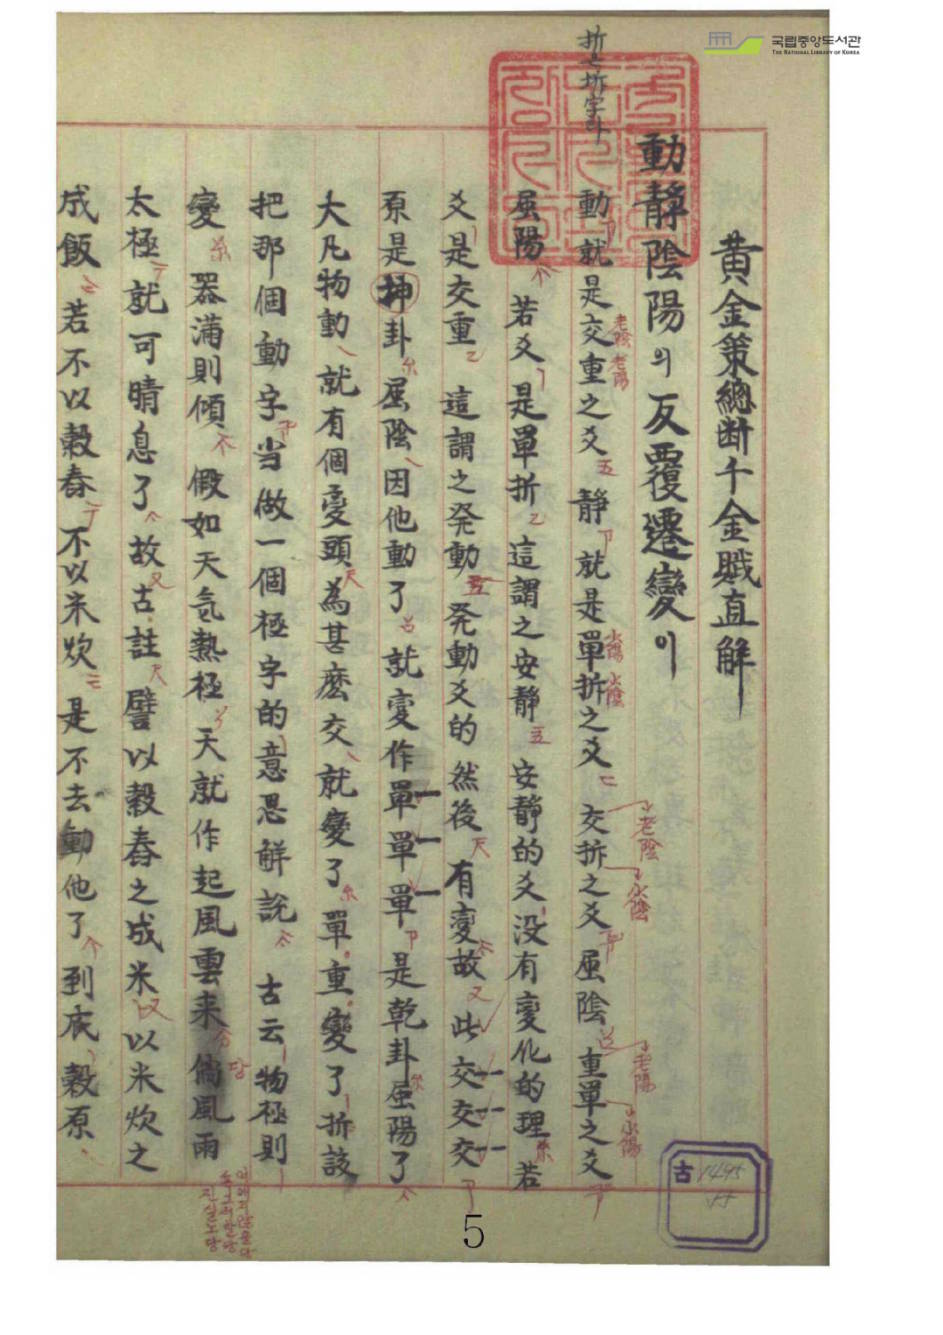 국립중앙도서관
THE NATIONAL LIBRARY OF KOREA
黄金策總断千金賦直解
動靜陰陽의 反覆遷變이
動就是交重之爻 靜就是單折之爻 交折之爻屈陰 重單之爻
屈陽 若爻是單折 這謂之安靜 安靜的爻没有変化的理 若
爻是交重 這謂之発動 発動爻的然後有変故 此交交交
原是坤卦屈陰因他動了就変作單單單是乾卦屈陽了
大凡物動就有個変頭為甚麽交就變了單重變了折該
把那個動字当做一個極字的意思解説 古云物極則
變 器滿則傾 假如天気熱極天就作起風雲来倘風雨
太極就可晴息了故古註譬以穀舂之成米以米炊之
成飯 若不以穀舂不以米炊 是不去動他了到底穀原
老陰
老陽
小陽
小陰
老陰
小陰
老陽
小陽
古
1495
5